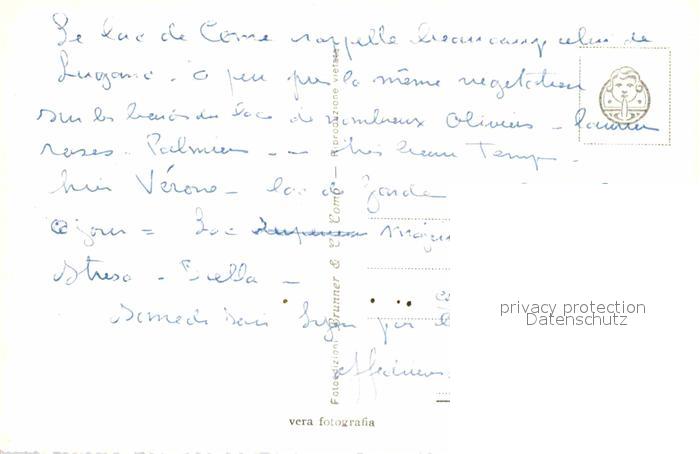 Le Lac de Come rappelle beaucoup celui de
Lugano - à peu près la même végétation
sur les bords du Lac de nombreux Oliviers - Lauriers
roses - Palmiers - - très beau Temps -
hier Vérone - lac de Garde
Ce jour = Lac
Stresa - Biella -
Samedi soir Lyon par
vera fotografia
Fotoedizioni Brunner & C. Como - Riproduzione vietata
privacy protection
Datenschutz